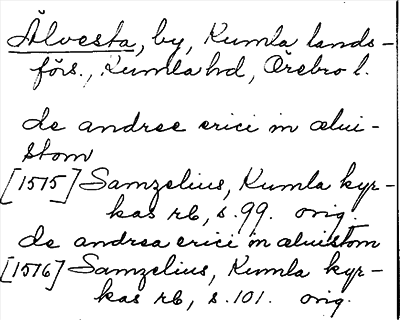 Älvesta, by, Kumla lands-
förs., Kumla hd, Örebro l.
de andree erici in alui-
stom
[1515] Samzelius, Kumla kyr-
kas rb, s. 99. orig.
de andrea erici in aluistom
[1516] Samzelius, Kumla kyr-
kas rb, s. 101. orig.